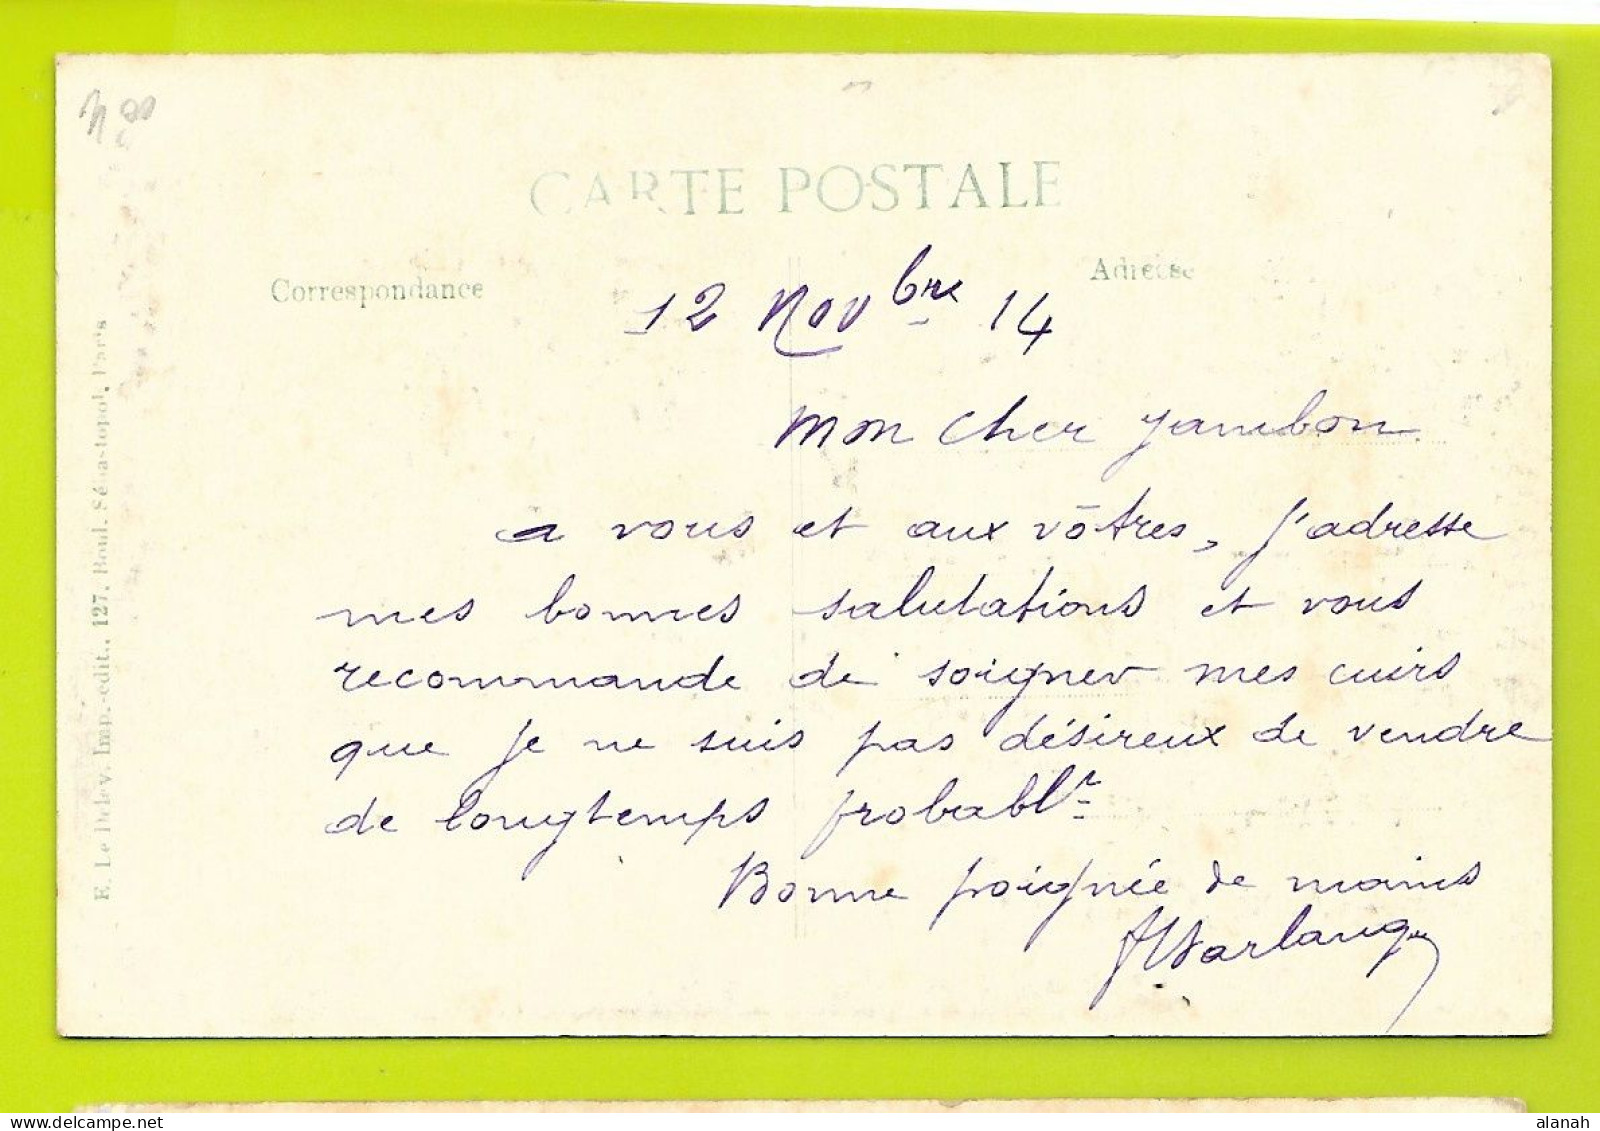 CARTE POSTALE
Correspondance
Adresse
12 Nov bre 14
Mon cher Jambon
a vous et aux vôtres, j'adresse
mes bonnes salutations et vous
recommande de soigner mes cuirs
que je ne suis pas désireux de vendre
de longtemps probablt
Bonne poignée de mains
E. Le Deley, Imp.-édit., 127, Boul. Sébastopol, Paris
alanah